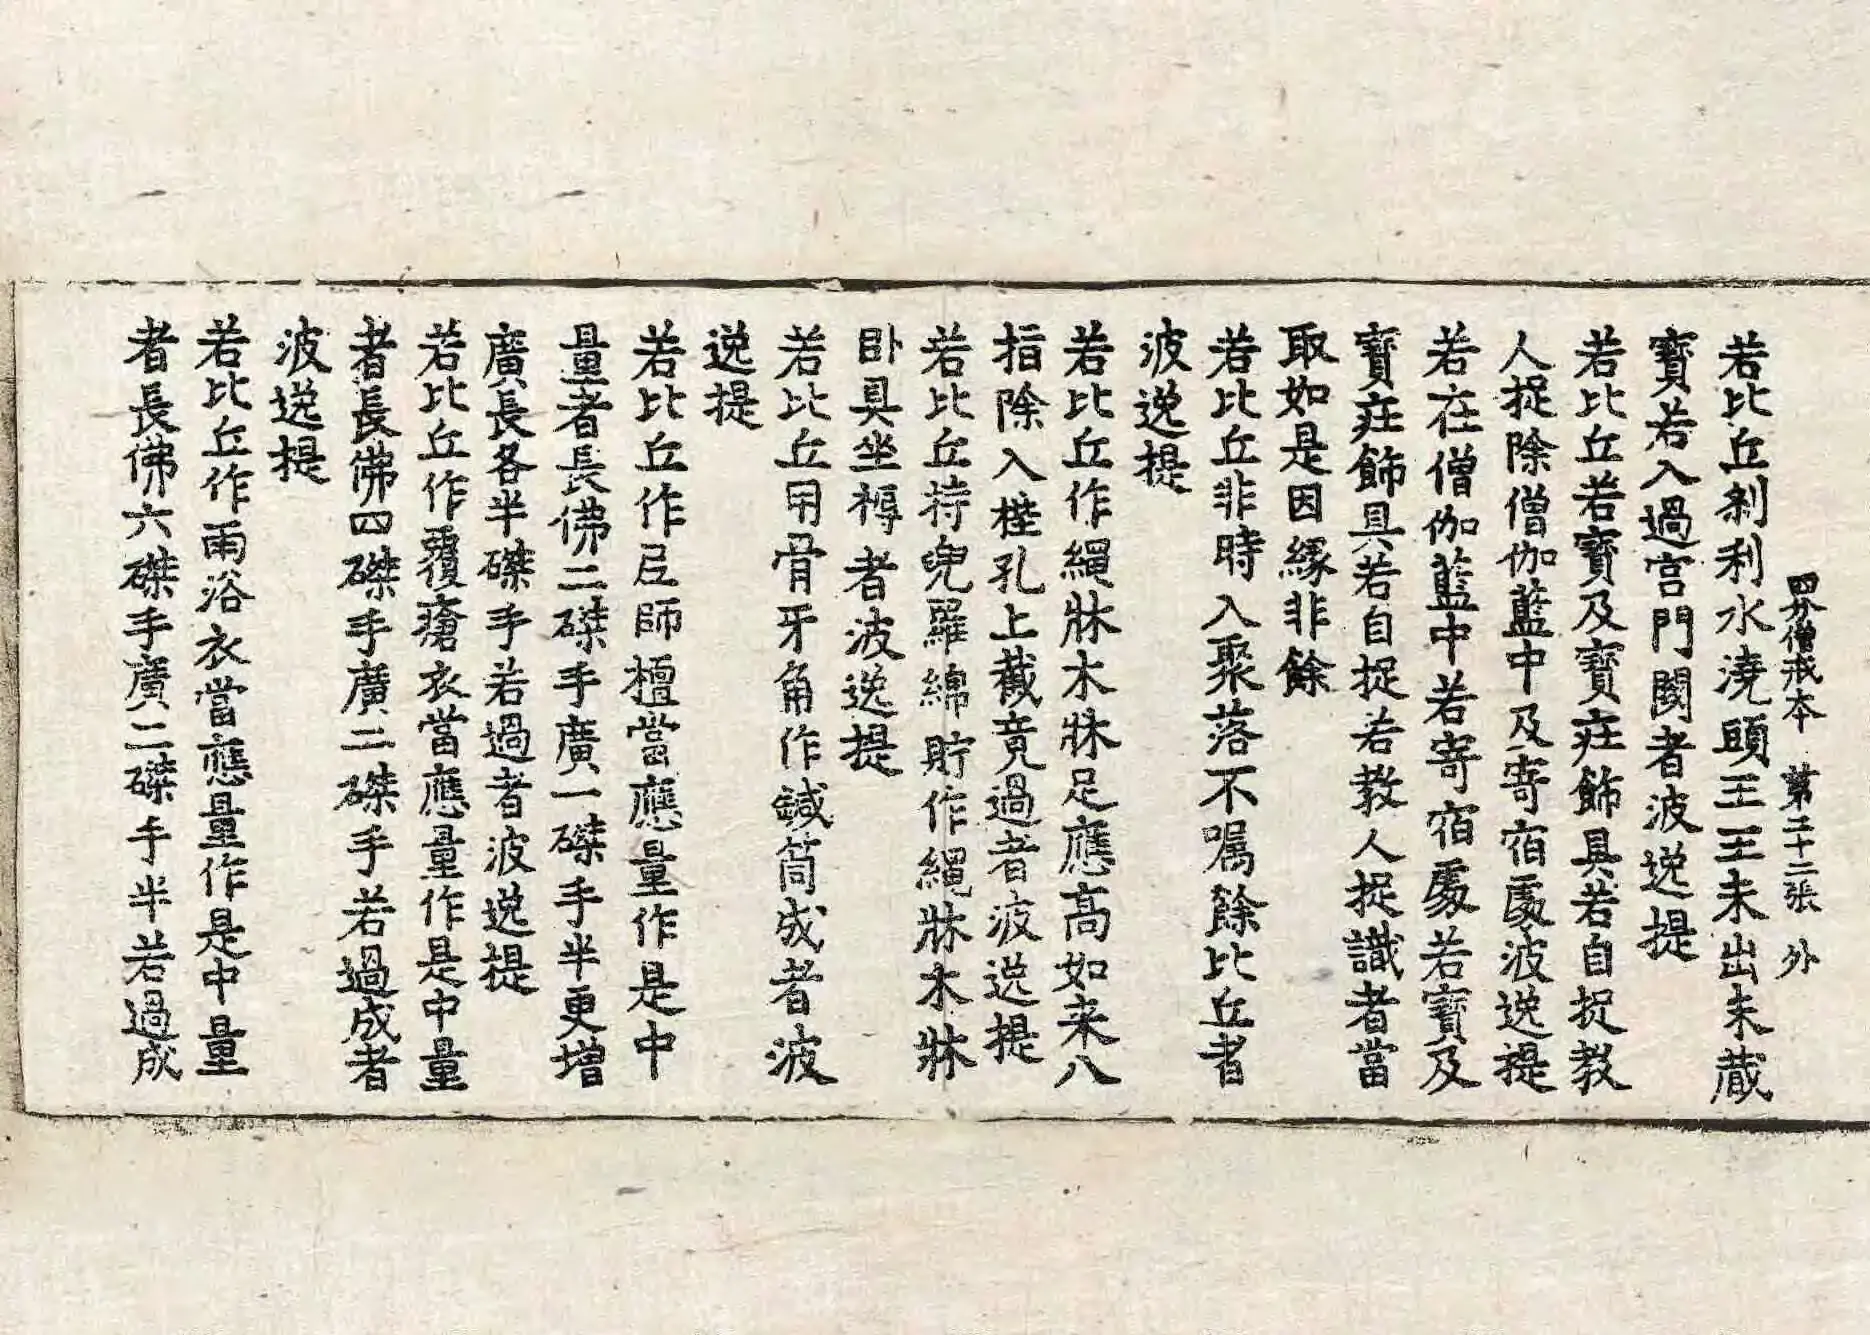 四分僧戒本 第二十二張 外
若比丘刹利水澆頭王王未出未蔵
寶若入過宫門閾者波逸提
若比丘若寶及寶莊飾具若自捉教
人捉除僧伽藍中及寄宿處波逸提
若在僧伽藍中若寄宿處若寶及
寶莊飾具若自捉若教人捉識者當
取如是因緣非餘
若比丘非時入聚落不囑餘比丘者
波逸提
若比丘作繩牀木牀足應高如来八
指除入梐孔上截竟過者波逸提
若比丘持兜羅綿貯作繩牀木牀
卧具坐褥者波逸提
若比丘用骨牙角作鍼筒成者波
逸提
若比丘作尼師檀當應量作是中
量者長佛二磔手廣一磔手半更增
廣長各半磔手若過者波逸提
若比丘作覆瘡衣當應量作是中量
者長佛四磔手廣二磔手若過成者
波逸提
若比丘作雨浴衣當應量作是中量
者長佛六磔手廣二磔手半若過成